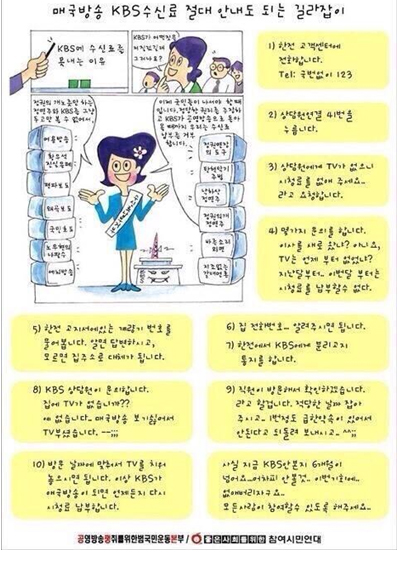 매국방송 KBS수신료 절대 안내도 되는 길라잡이
KBS에 수신료를
못내는 이유
KBS가 어떤짓을
저질렀길래
그러나요?
정권의 개노릇만 하는
이제 국민들이 나서야 할때
입니다. 정당한 권리를 주장하
고 KBS가 공영방송으로 돌아
올 때까지 우리는 수신료
납부를 거부
합니다.
어용방송
편파보도
왜곡보도
국민호도
정권연장
의 도구
탄핵방송
주범
1) 한전 고객센터에
전화합니다.
Tel: 국번없이 123
2) 상담원연결 41번을
누릅니다.
3) 상담원에게 TV가 없으니
시청료를 없애 주세요..
라고 요청합니다.
4) 몇가지 문의를 합니다.
이사를 새로 왔냐? 아니요,
TV는 언제 부터 없었냐?
지난달부터.. 이번달 부터는
시청료를 납부할수 없다.
5) 한전 고지서에있는 계량기 번호를
물어봅니다. 알면 답변하시고,
모르면 집주소로 대체가 됩니다.
6) 집 전화번호.. 알려주시면 됩니다.
7) 한전에서 KBS에게 분리고지
통지를 합니다.
8) KBS 상담원이 문의합니다.
집에 TV가 없습니까??
예 없습니다.. 매국방송 보기싫어서
TV부셨습니다. --;;;
9) 직원이 방문해서 확인하겠습니다.
라고 할겁니다. 적당한 날짜 잡아
주시고.. 1번정도 급한약속이 있어서
안된다고 되돌려 보내시고.. ^^;;
10) 방문 날짜에 맞춰서 TV를 치워
놓으시면 됩니다. 이상 KBS가
애국방송이 되면 언제든지 다시
시청료 납부합니다.
사실 지금 KBS안본지 6개월이
넘어요..어차피 안볼것.. 이번기회에..
없애버리자구요..
모든사람이 참여할수 있도록 해주세요..
공영방송쟁취를위한범국민운동본부 / 좋은사회를위한 참여시민연대